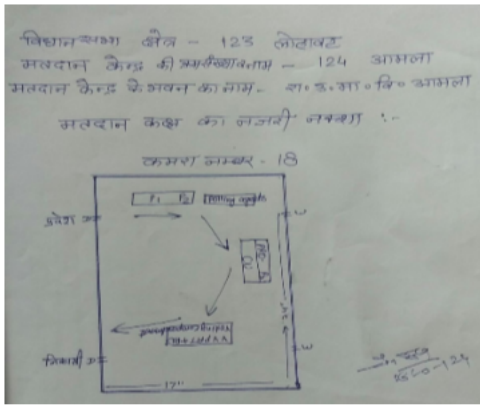 विधानसभा क्षेत्र - 123 लोहावट
मतदान केन्द्र की क्रमसंख्या व नाम - 124 आमला
मतदान केन्द्र के भवन का नाम - रा. उ. मा. वि. आमला
मतदान कक्ष का नजरी नक्शा :-
कमरा नम्बर - 18
P1 P2 Polling agents
प्रवेश
W
निकासी
W
17"
124